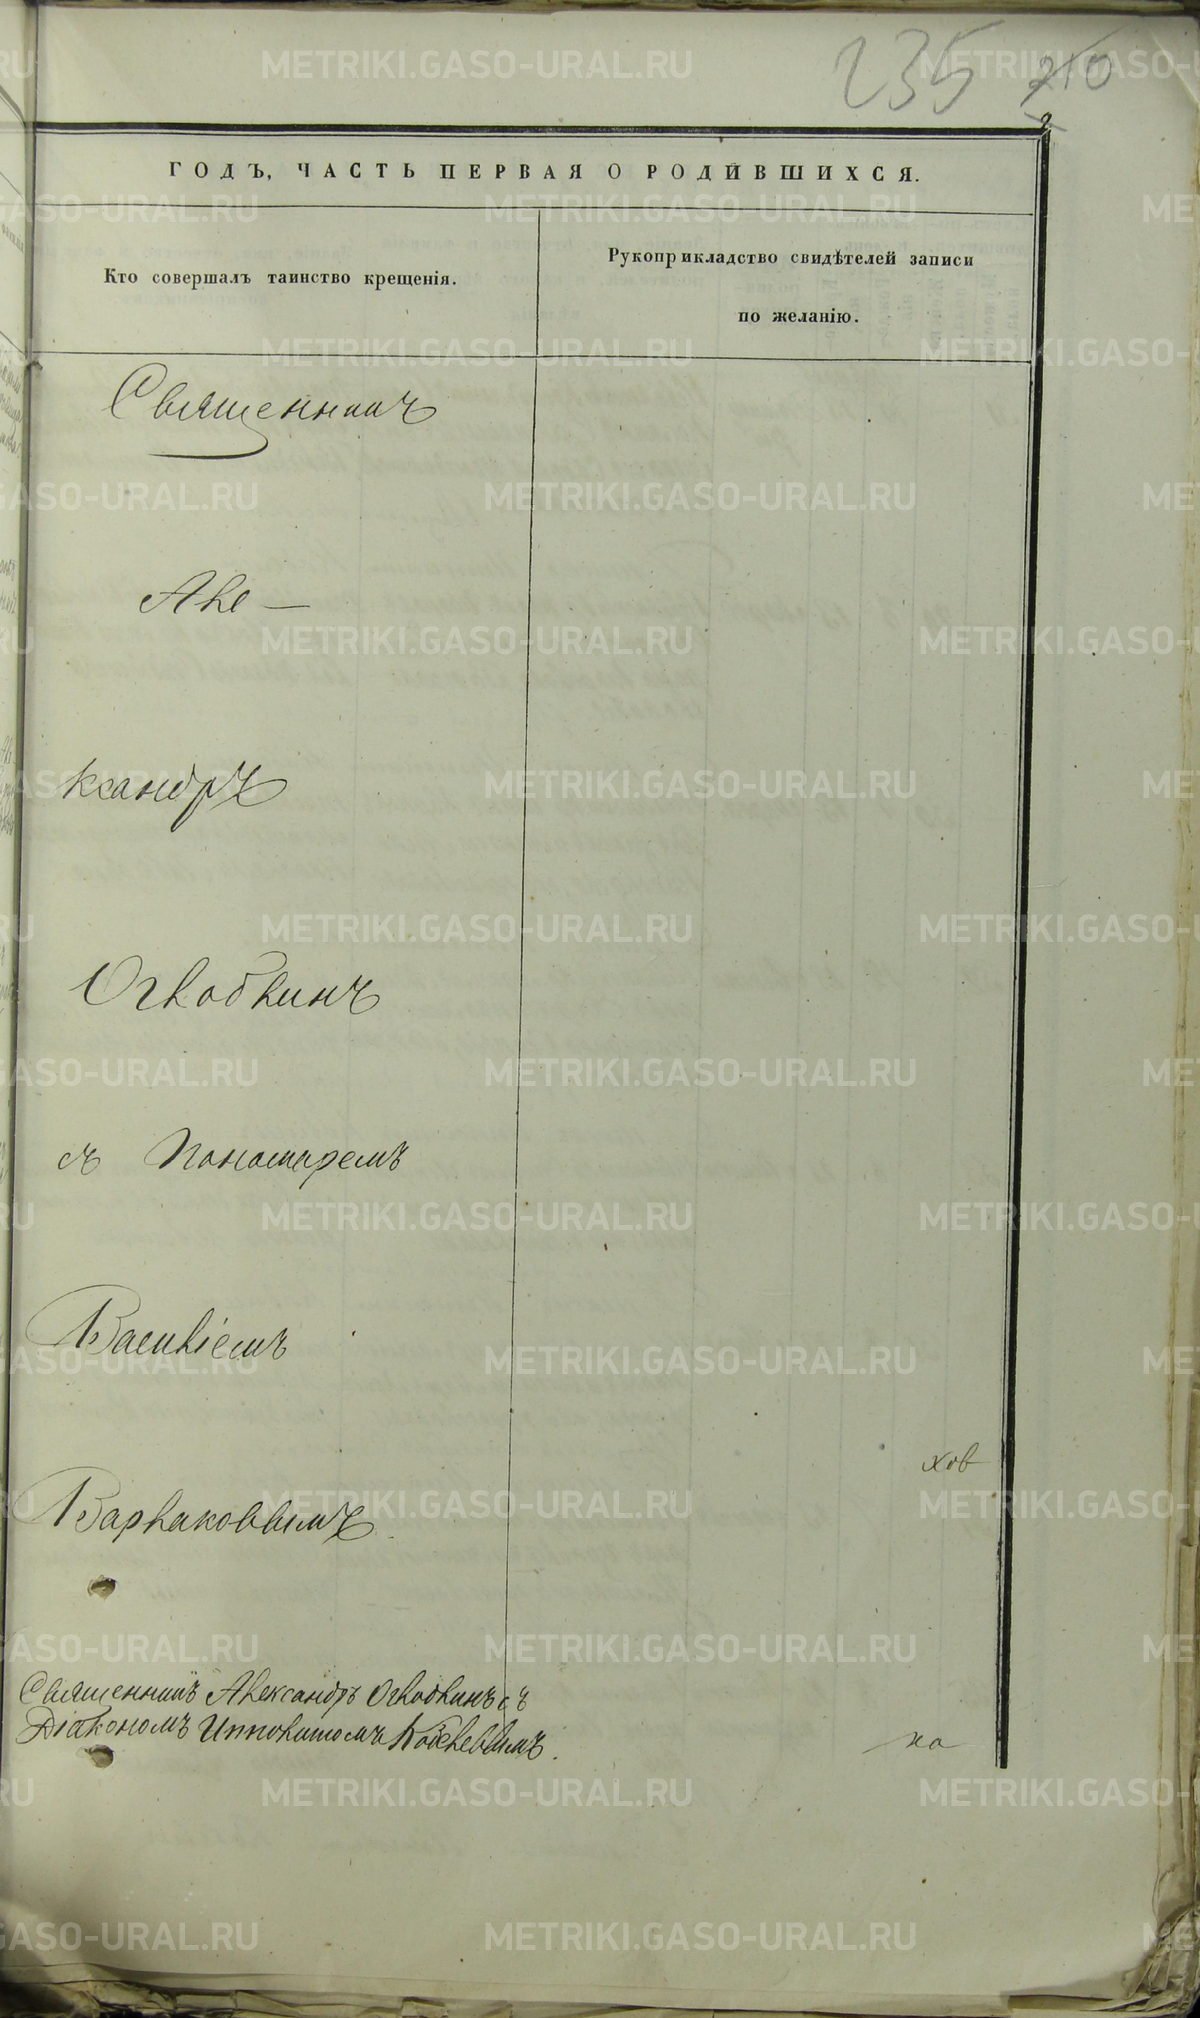 235 210
2
ГОДЪ, ЧАСТЬ ПЕРВАЯ О РОДИВШИХСЯ.
Кто совершалъ таинство крещенія.
Рукоприкладство свидѣтелей записи
по желанію.
Священникъ
Але —
ксандръ
Оглоблинъ
съ Пономаремъ
Василіемъ
Варлаковымъ
хов
Священникъ Александръ Оглоблинъ съ
Діакономъ Ипполитомъ
на
METRIKI.GASO-URAL.RU